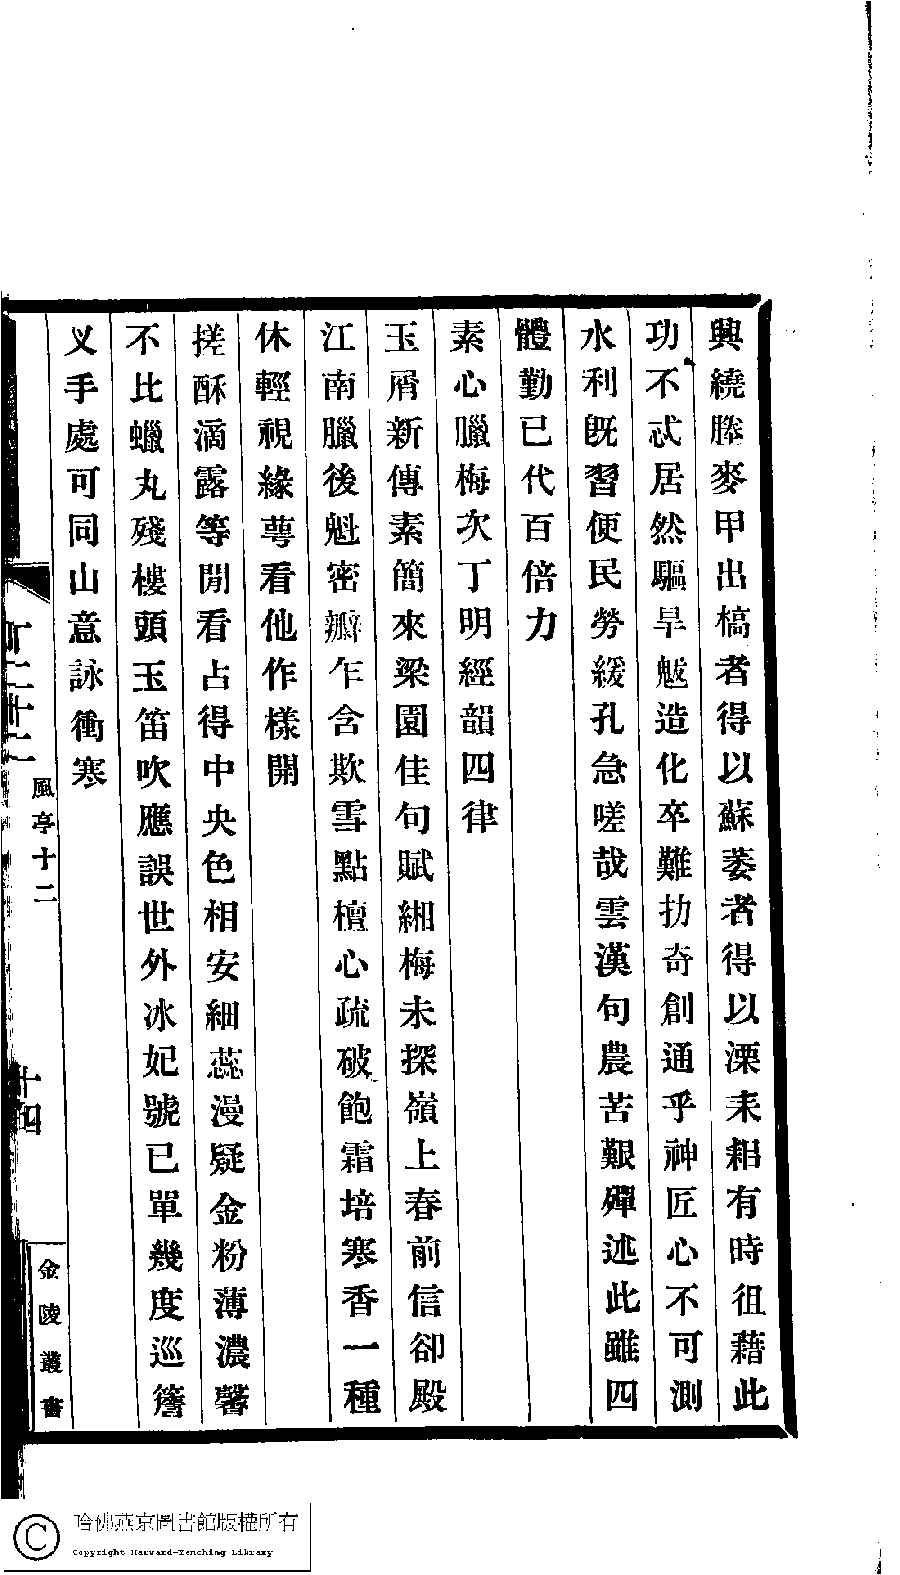 興繞塍麥甲出槁者得以蘇萎者得以溧耒耜有時徂藉此
功不忒居然驅旱魃造化卒難扐奇創通乎神匠心不可測
水利旣習便民勞緩孔急嗟哉雲漢句農苦艱殫述此雖四
體勤已代百倍力
素心臘梅次丁明經韻四律
玉屑新傳素簡來梁園佳句賦緗梅未探嶺上春前信卻殿
江南臘後魁密瓣乍含欺雪點檀心疏破飽霜培寒香一種
休輕視緣萼看他作樣開
搓酥滴露等閒看占得中央色相安細蕊漫疑金粉薄濃馨
不比蠟丸殘樓頭玉笛吹應誤世外冰妃號已單幾度巡簷
义手處可同山意詠衝寒
風亭十二
十四
金陵叢書
哈佛燕京圖書館版權所有
Copyright Harvard-Yenching Library